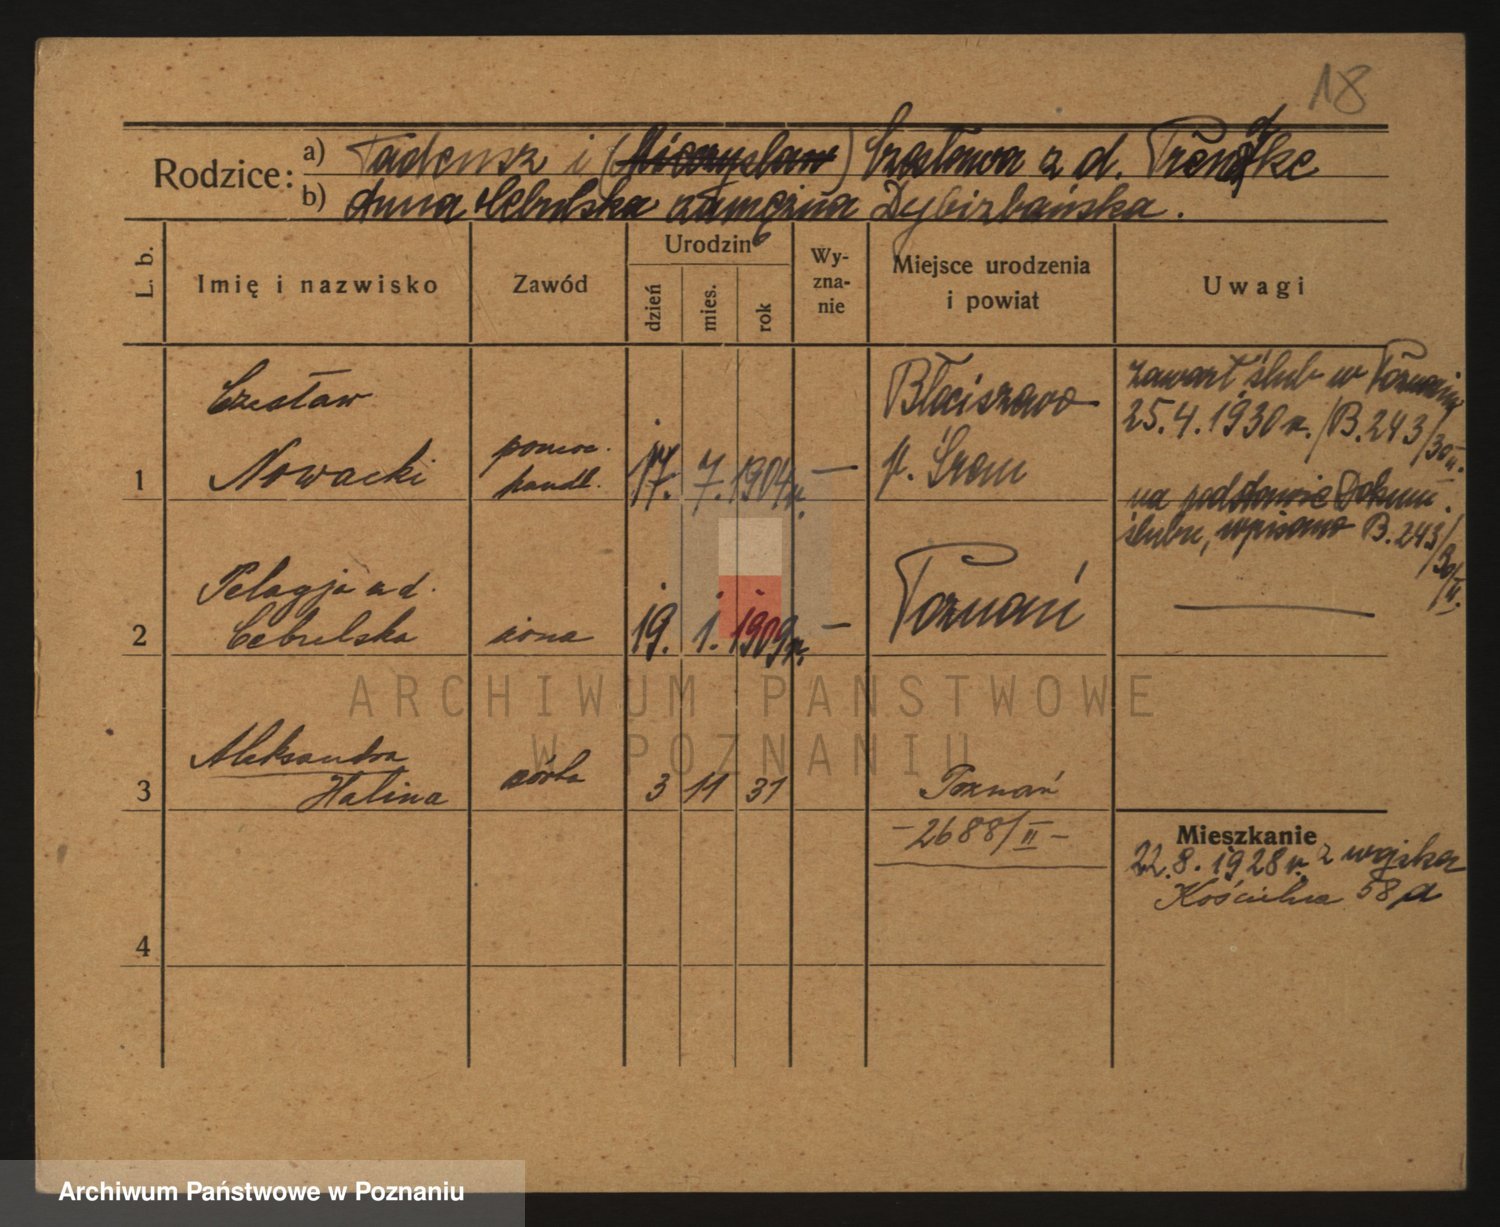 18
Rodzice: a) Tadeusz i (Mieczysław) Czesława z d.
b) Anna Cebulska zamężna
L. b. Imię i nazwisko Zawód Urodzin dzień mies. rok Wy-zna-nie Miejsce urodzenia i powiat Uwagi
Czesław
Nowacki
pomoc.
handl.
1 17. 7. 1904 r. —
p. Śrem
zawarł ślub w Poznaniu
25.4.1930 r. /B.243/30 II.
na podstawie dokum.
ślubu, wpisano B.243/30/II.
Pelagja z d.
2 Cebulska żona 19. 1. 1909 r. — Poznań
Aleksandra
3 Halina córka 3 11 31 Poznań
- 2688/II -
4
Mieszkanie
22.8.1928 r. z wojska
Kościelna 58 a
ARCHIWUM PAŃSTWOWE
W POZNANIU
Archiwum Państwowe w Poznaniu